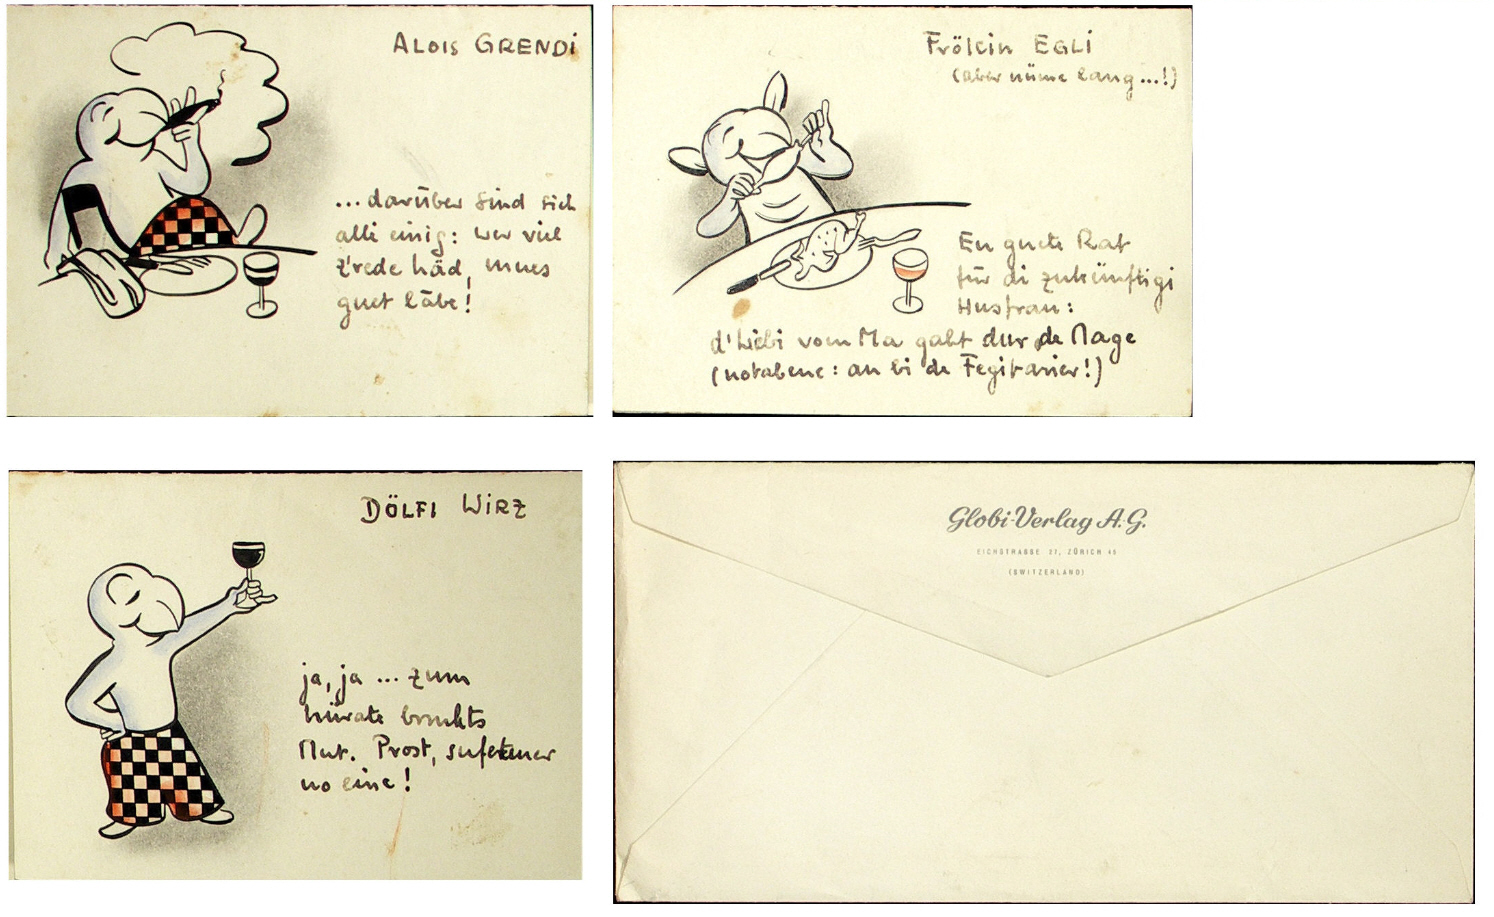 ALOIS GRENDi
...darüber sind sich
alli einig: wer viel
z'rede häd, mues
guet läbe!
Frölein EGLI
(aber nüme lang...!)
En guete Rat
für di zukünftigi
Husfrau:
d'Liebi vom Ma gaht dur de Mage
(notabene: au bi de Fegitarier!)
DÖLFI WiRZ
ja, ja ... zum
hürate bruchts
Mut. Prost,
no eine!
Globi-Verlag A.G.
EICHSTRASSE 27, ZÜRICH 45
(SWITZERLAND)